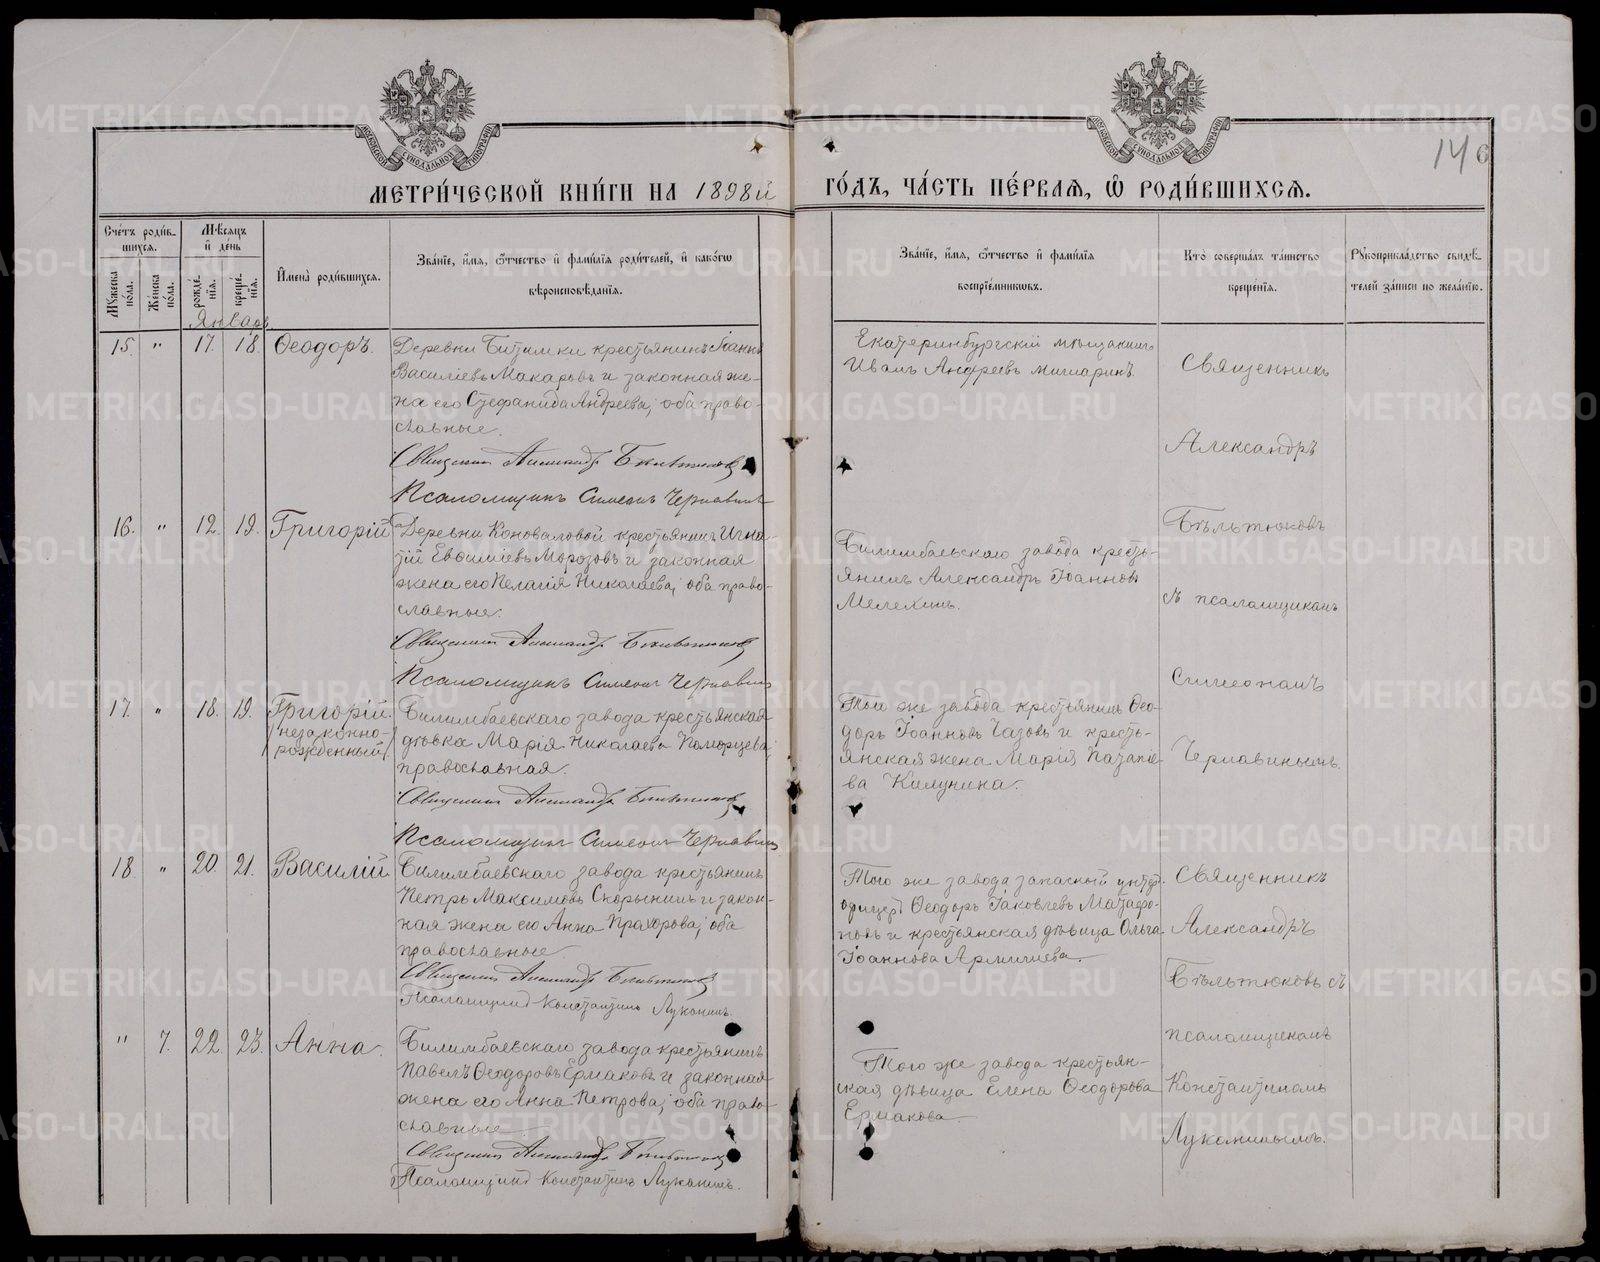 МОСКОВСКОЙ СѴНОДАЛЬНОЙ ТИПОГРАФІИ
МОСКОВСКОЙ СѴНОДАЛЬНОЙ ТИПОГРАФІИ
14
6
МЕТРИ́ЧЕСКОЙ КНИ́ГИ НА 1898й
ГО́ДЪ, ЧА́СТЬ ПЕ́РВАЯ, Ѿ РОДИ́ВШИХСЯ.
Сче́тъ роди́в-
шихся.
Мѣ́сяцъ
и҆ де́нь
Мꙋ́жеска по́ла.
Же́нска по́ла.
рожде́-нїя.
креще́-нїя.
И҆мена̀ роди́вшихся.
Зва́нїе, и҆́мя, ѻ҆́тчество и҆ фами́лїя роди́телей, и҆ како́гѡ
вѣроисповѣ́данїя.
Зва́нїе, и҆́мя, ѻ҆́тчество и҆ фами́лїя
воспрїе́мникѡвъ.
Кто̀ соверша́лъ та́инство
креще́нїя.
Рꙋкоприкла́дство свидѣ́-
телей за́писи по жела́нїю.
Январь
15. " 17. 18. Ѳеодоръ.
Деревни Битимки крестьянинъ Іоаннъ
Василіевъ Макаровъ и законная же-
на его Стефанида Андреева; оба право-
славные.
Священникъ Александръ Бѣльтюковъ
Псаломщикъ Симеонъ Чернавинъ
Екатеринбургскій мѣщанинъ
Иванъ Андреевъ Мишаринъ.
Священникъ
Александръ
Бѣльтюковъ
съ псаломщикомъ
Симеономъ
Чернавинымъ.
16. " 12. 19. Григорій
Деревни Коноваловой крестьянинъ Игна-
тій Евѳиміевъ Морозовъ и законная
жена его Пелагія Николаева; оба право-
славные.
Священникъ Александръ Бѣльтюковъ
Псаломщикъ Симеонъ Чернавинъ
Билимбаевскаго завода кресть-
янинъ Александръ Іоанновъ
Мелехинъ.
17. " 18. 19. Григорій.
/незаконно-
рожденный/
Билимбаевскаго завода крестьянская
дѣвка Марія Николаева Поморцева;
православная.
Священникъ Александръ Бѣльтюковъ
Псаломщикъ Симеонъ Чернавинъ
Того же завода крестьянинъ Ѳео-
доръ Іоанновъ Чазовъ и кресть-
янская жена Марія
ва Килунина.
18 " 20. 21. Василій.
Билимбаевскаго завода крестьянинъ
Петръ Максимовъ Скорынинъ и закон-
ная жена его Анна Прохорова; оба
православные.
Священникъ Александръ Бѣльтюковъ
Псаломщикъ Константинъ Луканинъ.
Того же завода запасный унтеръ-
офицеръ Ѳеодоръ Іаковлевъ Матафо-
новъ и крестьянская дѣвица Ольга
Іоаннова
Священникъ
Александръ
Бѣльтюковъ съ
псаломщикомъ
Константиномъ
Луканинымъ.
" 7. 22. 23. Анна.
Билимбаевскаго завода крестьянинъ
Павелъ Ѳеодоровъ Ермаковъ и законная
жена его Анна Петрова; оба право-
славные
Священникъ Александръ Бѣльтюковъ
Псаломщикъ Константинъ Луканинъ.
Того же завода крестьян-
ская дѣвица Елена Ѳеодорова
Ермакова.
METRIKI.GASO-URAL.RU